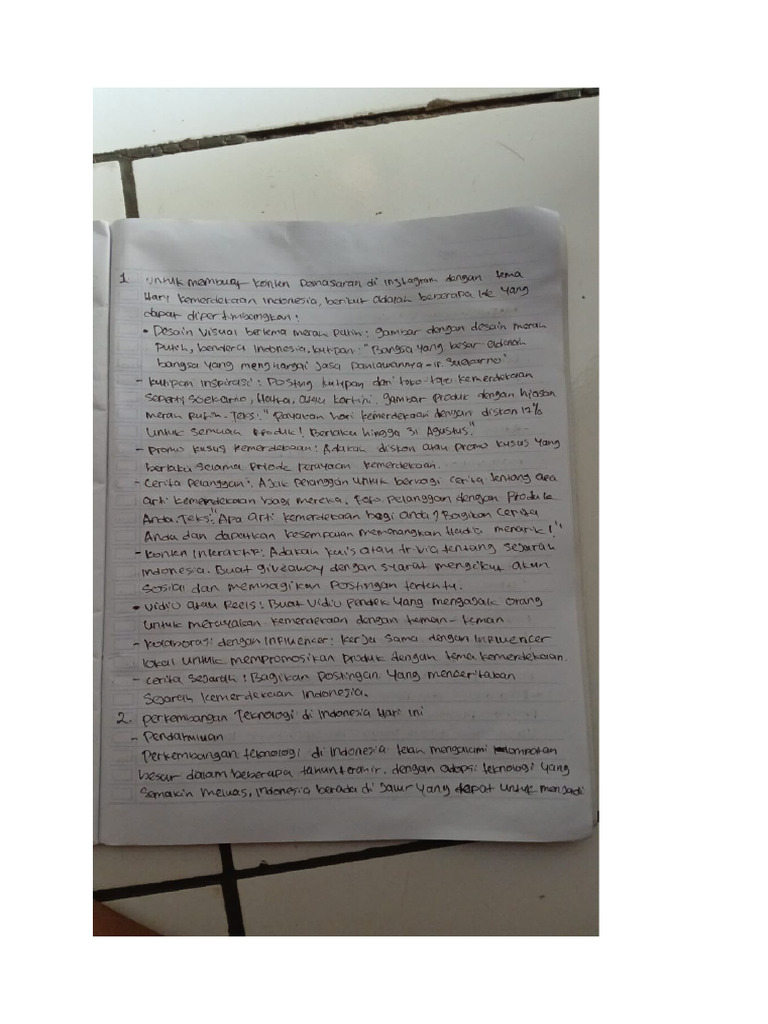 1. Untuk membuat konten Pemasaran di instagram dengan tema
Hary kemerdekaan indonesia, berikut adalah beberapa ide yang
dapat dipertimbangkan:
• Desain Visual bertema merah putih: gambar dengan desain merah
Putih, bendera Indonesia. kutipan: "Bangsa yang besar adalah
bangsa yang menghargai Jasa Pahlawannya - ir. Suekarno"
- kutipan inspirasi: Posting kutipan dari kemerdekaan
Seperti Soekarno, Hatta, atau kartini. gambar Produk dengan hiasan
merah Putih. Teks: "Rayakan hari kemerdekaan dengan diskon 17%
Untuk Semuah Produk! Berlaku hingga 31 Agustus."
- Promo kusus kemerdekaan: Adakah diskon atau Promo kusus yang
berlaku Selama Priode Perayaan kemerdekaan.
- Cerita Pelanggan: Ajak Pelanggan Untuk berbagi cerita tentang apa
arti kemerdekaan bagi mereka. Foto Pelanggan dengan Produk
Anda. Teks: "Apa arti kemerdekaan bagi anda? Bagikan Cerita
Anda dan dapatkan kesempatan memenangkan menarik!"
- konten Interaktif: Adakan kuis atau tentang Sejarah
Indonesia. Buat giveaway dengan Syarat mengikut akun
Sosial dan membagikan Postingan tertentu.
• Vidio atau Reels: Buat Vidio Pendek yang mengajak orang
Untuk merayakan kemerdekaan dengan teman-teman
- kolaborasi dengan Influencer: kerja Sama dengan Influencer
lokal Untuk mempromosikan Produk dengan tema kemerdekaan.
- cerita Sejarah: Bagikan Postingan yang
Sejarah kemerdekaan Indonesia.
2. perkembangan Teknologi di Indonesia Hari ini
- Pendahuluan
Perkembangan teknologi di Indonesia telah mengalami lompatan
besar dalam beberapa tahun terahir. dengan adopsi teknologi yang
Semakin meluas, Indonesia berada di Jalur yang dapat Untuk menjadi